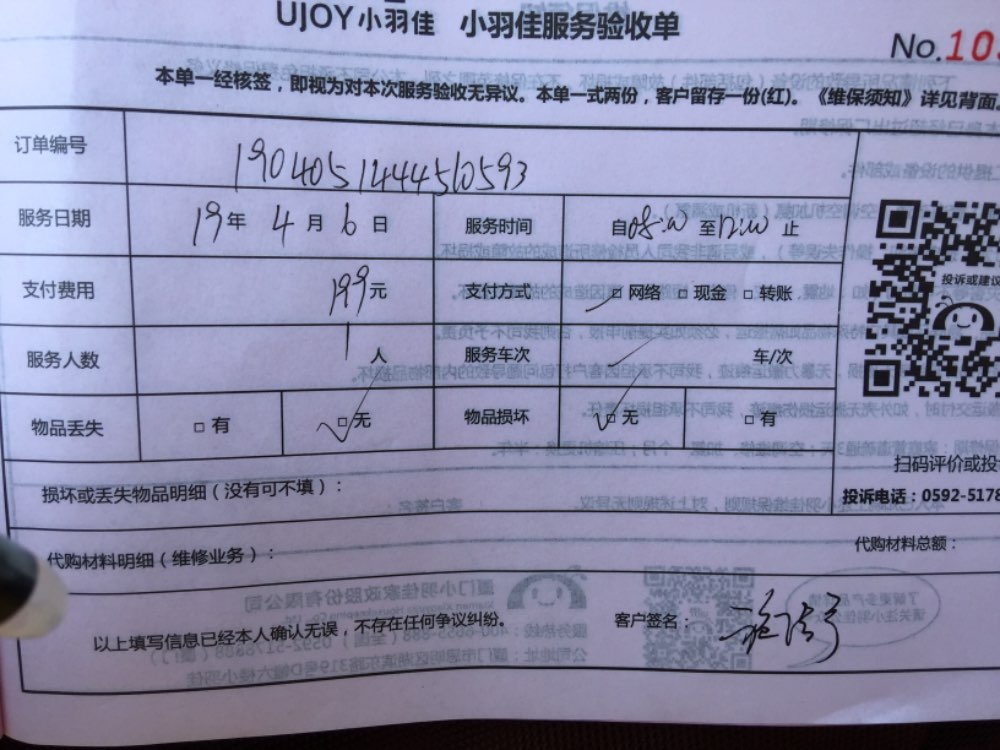 UJOY小羽佳 小羽佳服务验收单
No.10
本单一经核签，即视为对本次服务验收无异议。本单一式两份，客户留存一份(红)。《维保须知》详见背面。
订单编号 1904051444510593
服务日期 19年 4月 6日 服务时间 自08:00 至12:00 止
支付费用 199元 支付方式 □网络 □现金 □转账
服务人数 1人 服务车次 车/次
物品丢失 □有 □无 物品损坏 □无 □有
投诉或建议
扫码评价或投
损坏或丢失物品明细（没有可不填）：
投诉电话：0592-5178
代购材料明细（维修业务）： 代购材料总额：
以上填写信息已经本人确认无误，不存在任何争议纠纷。 客户签名：